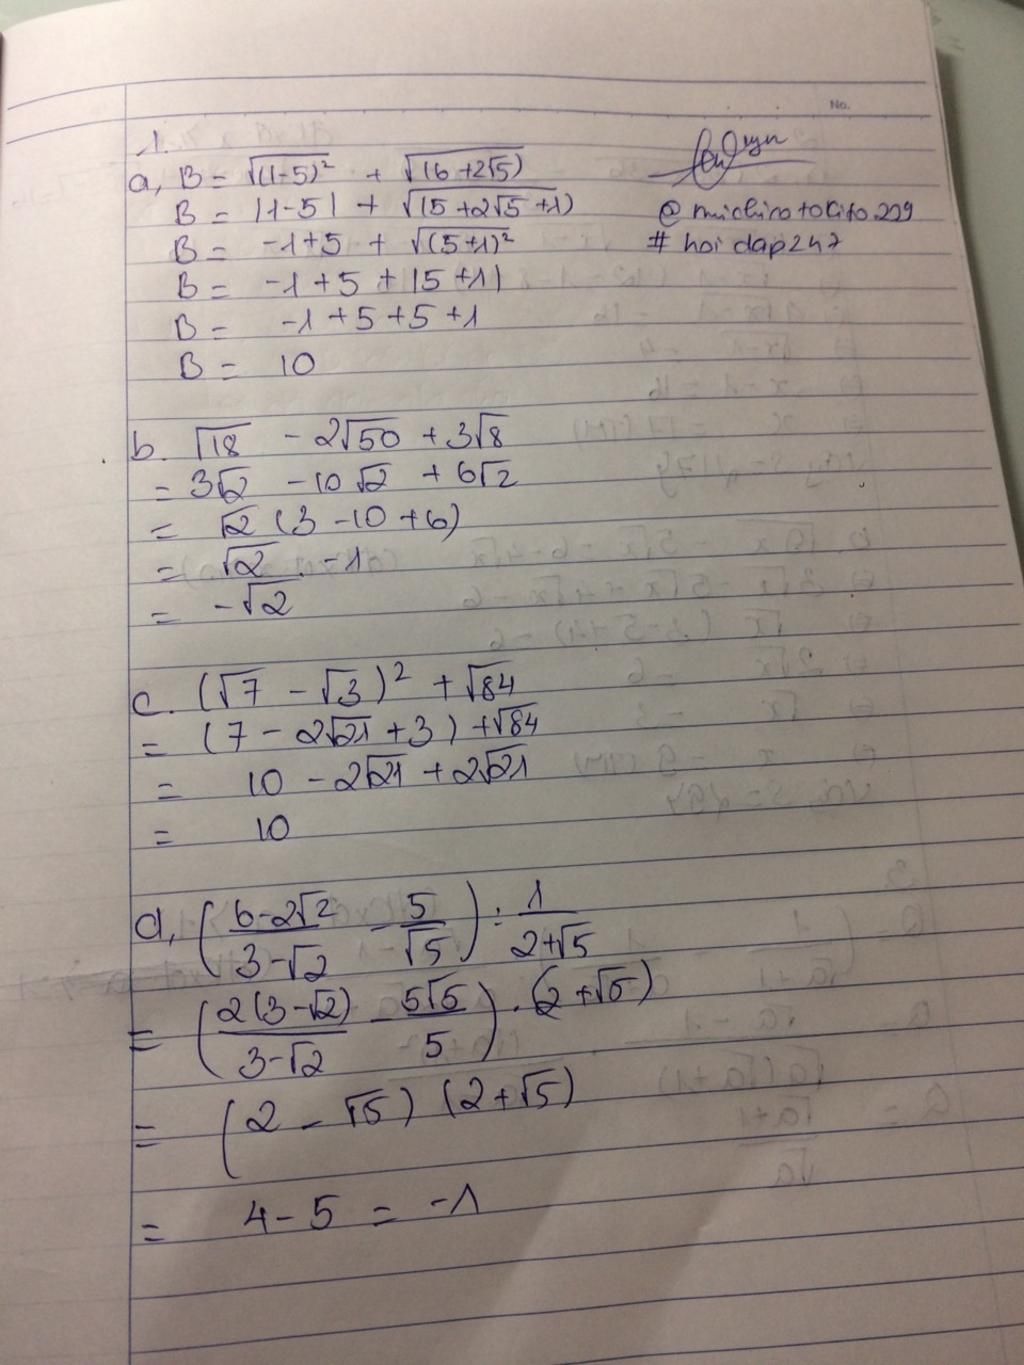 No.
1.
a, B = √(1-5)² + √(16+2√5)
B = |1-5| + √(15+2√5+1)
B = -1+5 + √(5+1)²
B = -1+5 + |5+1|
B = -1+5+5+1
B = 10
@michirotokito209
# hoidap247
b. √18 - 2√50 + 3√8
= 3√2 - 10√2 + 6√2
= √2 (3-10+6)
= √2 . -1
= -√2
c. (√7 - √3)² + √84
= (7 - 2√21 + 3) + √84
= 10 - 2√21 + 2√21
= 10
d, (6-2√2/3-√2 - 5/√5) : 1/2+√5
= (2(3-√2)/3-√2 - 5√5/5) . (2+√5)
= (2 - √5) (2+√5)
= 4-5 = -1